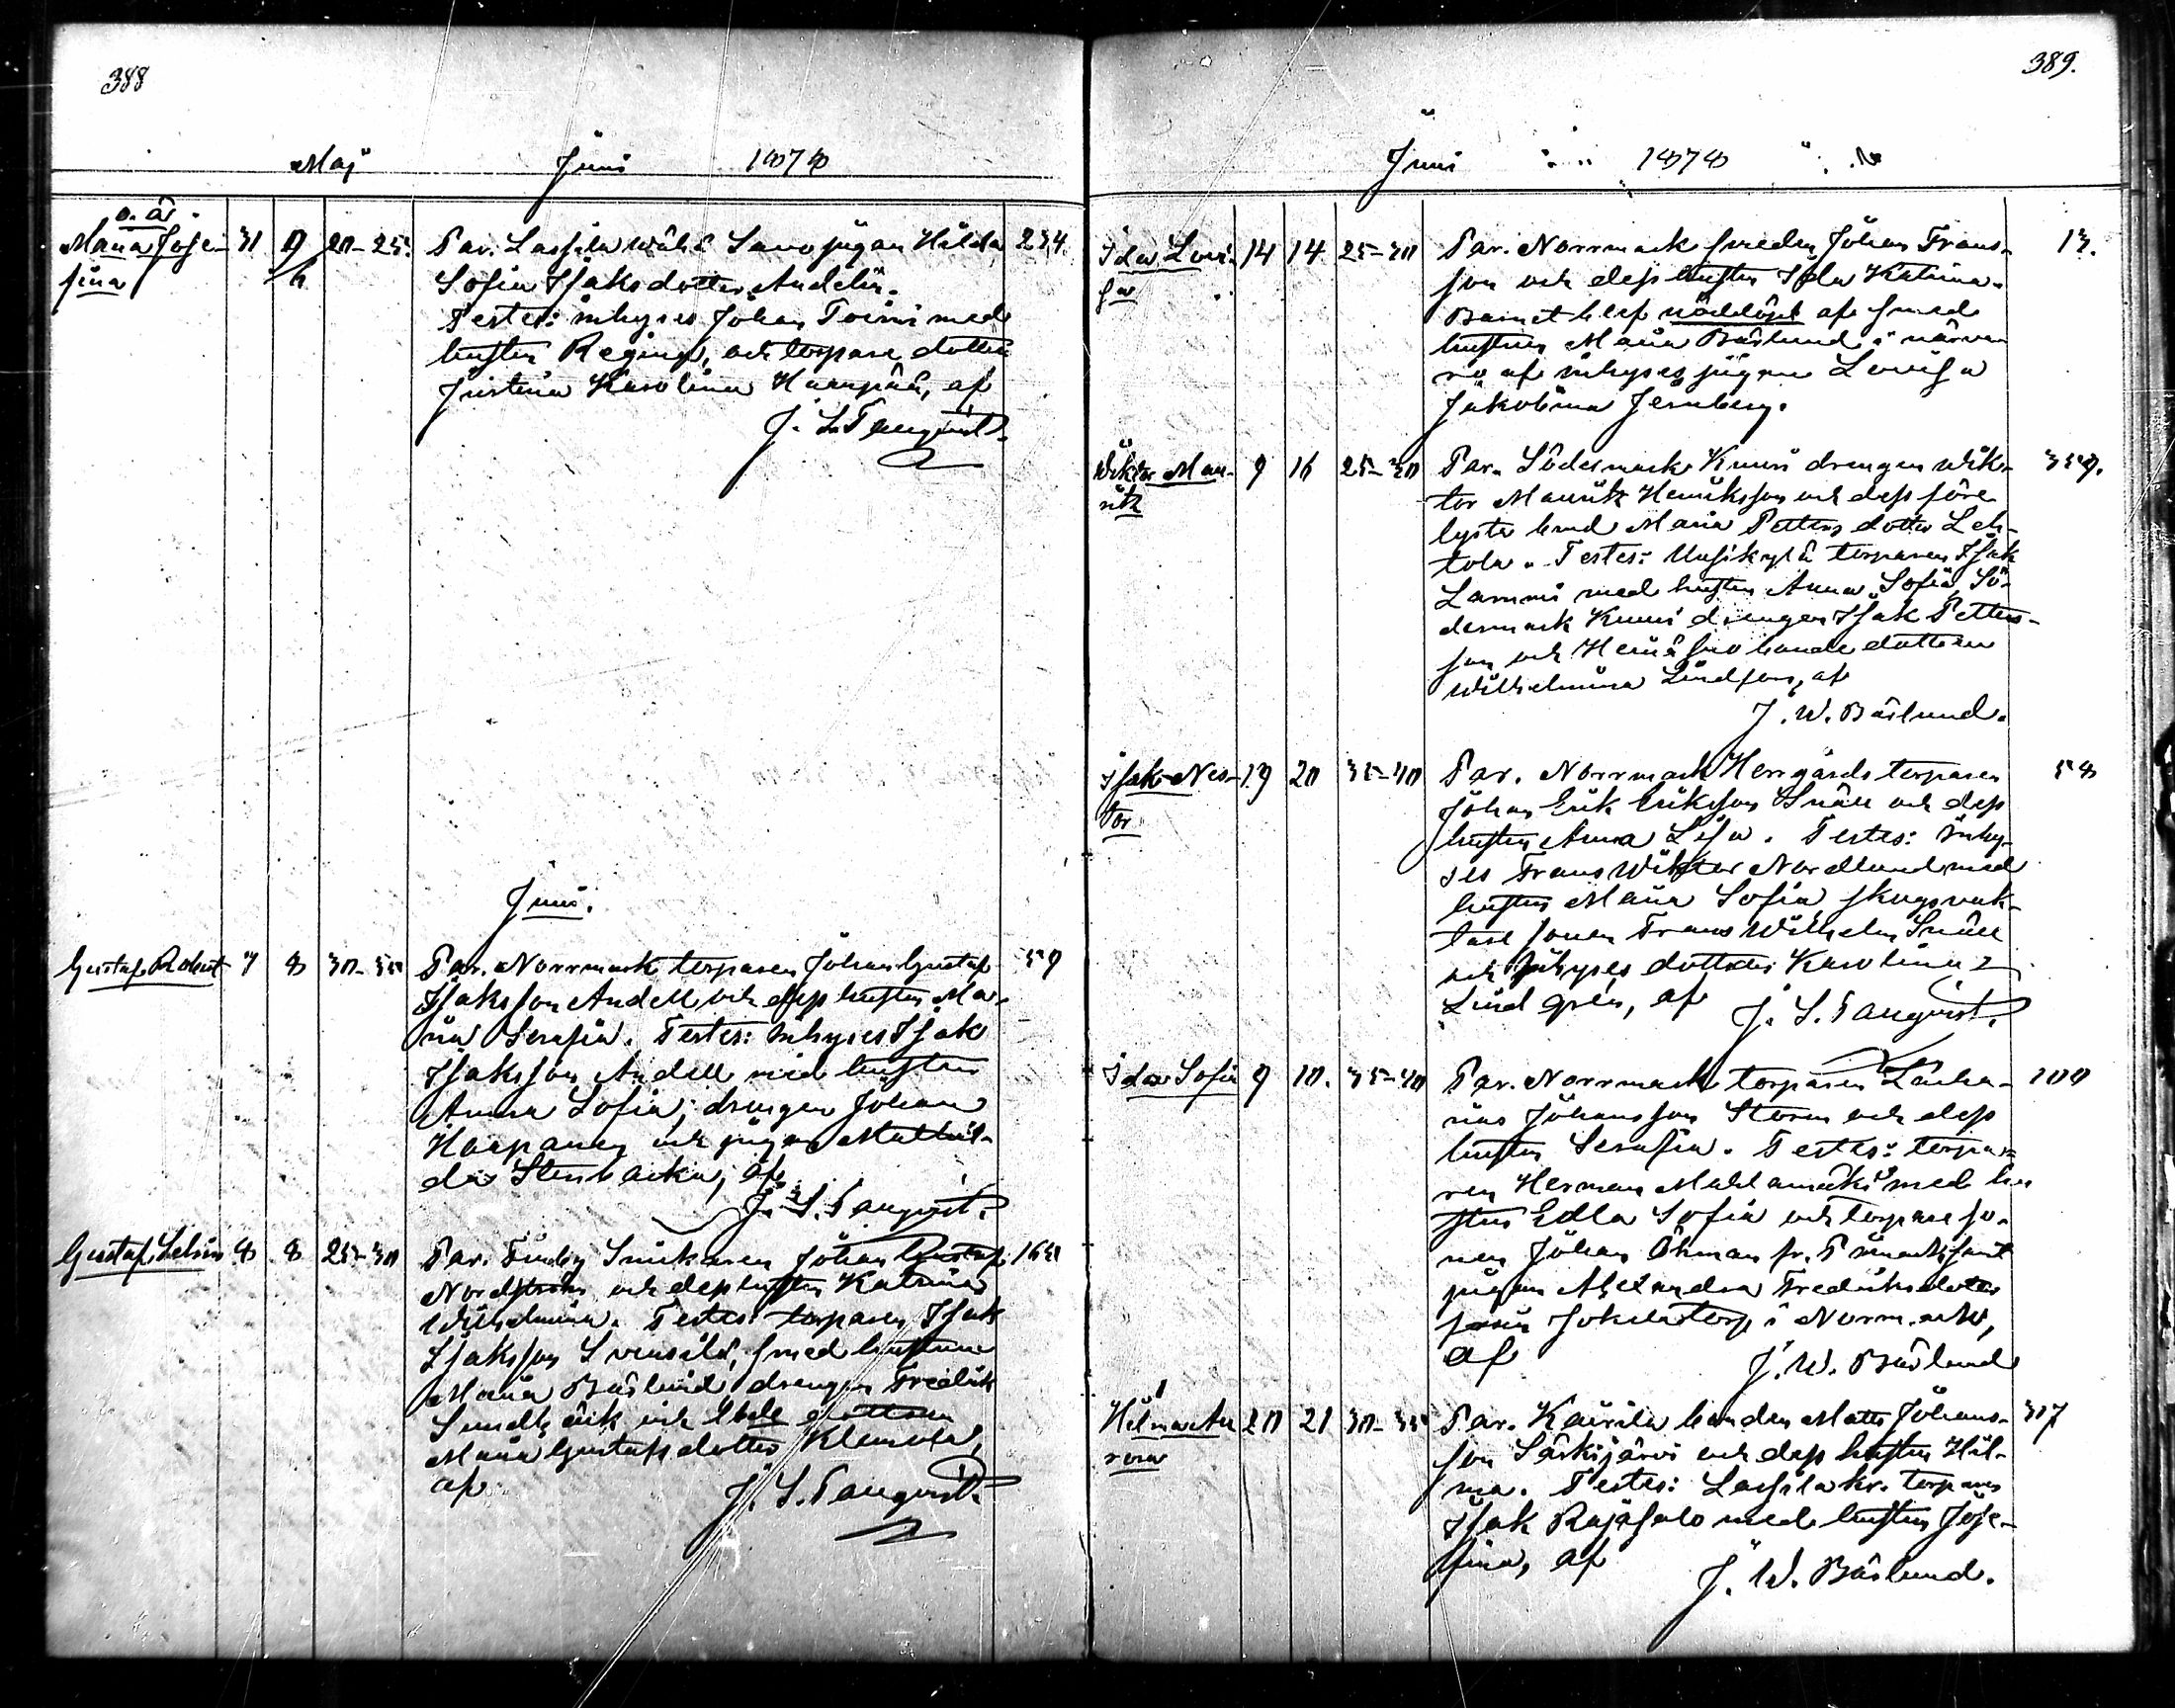 388
Maj Juni 1878
o. ä.
Maria Jose- 31 9/6 20-25. Par. Lassila wähä Savo pigan Hilda 234.
fina Sofia Isaksdotter Andelin.
Testes: inhyses Johan Toimi med
hustru Regina, och torpare dottren
Justina Karolina Haanpää, af
J. S. Tanqvist.
Juni.
Gustaf Robert 7 8 30-35 Par. Norrmark torparen Johan Gustaf 59
Isaksson Andell och dess hustru Ma-
ria Serafia. Testes: inhyses Isak
Isaksson Andell med hustru
Anna Sofia; drengen Johan
Haapanen och pigan Mathil-
da Stenbacka, af
J. S. Tanqvist.
Gustaf Selim 8 8 25-30 Par. Finby Snikaren Johan Gustaf
Nordström och dess hustru Katrina
Wilhelmina. Testes: torparen Isak
Isaksson Svensilä, smed hustrun
Maria Bäslund drengen Fredrik
och dottren
Maria Gustafsdotter Klemola,
af
J. S. Tanqvist.
389.
Juni 1878
Ida Lovi- 14 14 25-30 Par. Norrmark smeden Johan Frans- 13.
sa son och dess hustru Ida Katrina.
Barnet blef nöddöpt af smed
hustrun Maria Bäslund i närva
ro af inhyses pigan Lovisa
Jakobina Jernberg.
Wiktor Mau- 9 16 25-30 Par. Södermark Knuus drengen Wik-
ritz tor Mauritz Henriksson och dess före
lyste brud Maria Petters dotter Leh-
tola. Testes: Uusikylä torparen Isak
Lammi med hustru Anna Sofia, Sö-
dermark Knuus drengen Isak Petters-
son och Heinäsuo bonde dottren
Wilhelmina Lindfors, af
J. W. Bäslund.
Isak Nes- 19 20 35-40 Par. Norrmark Herrgårds torparen 58
tor Johan Erik Eriksson Snäll och dess
hustru Anna Lisa. Testes: inhy-
ses Frans Wiktor Nordlund med
hustru Maria Sofia skogsvak-
tare sonen Frans Wilhelm Snäll
och inhyses dottren Karolina
Lindgren, af J. S. Tanqvist.
Ida Sofia 9 10. 35-40 Par. Norrmark torparen Zacha- 100
rias Johansson Storm och dess
hustru Serafia. Testes: torpa-
ren Herman Mahlamäki med hu
stru Edla Sofia och torpare so-
nen Johan Öhman fr. samt
pigan Alexandra Fredriksdotter
från Jokela torp i Norrmark,
af J. W. Bäslund
Hilma Au 20 21 30-35 Par. Kairila bonden Matts Johans- 307
rora son Särkijärvi och dess hustru Hil-
ma. Testes: Lassila kr. torparen
Isak Rajasalo med hustru Jose-
fina, af J. W. Bäslund.